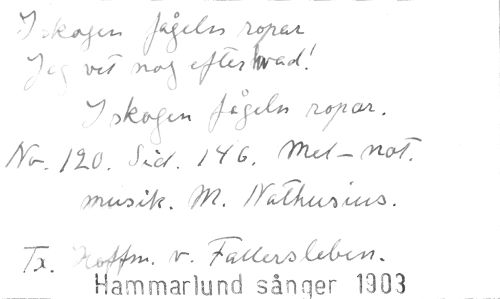 I skogen fågeln ropar
Jag vet nog efter hvad!
I skogen fågeln ropar.
No. 120. Sid. 146. Mel-not.
musik. M. Nathusius.
Tx. Hoffm. v. Fallersleben.
Hammarlund sånger 1903